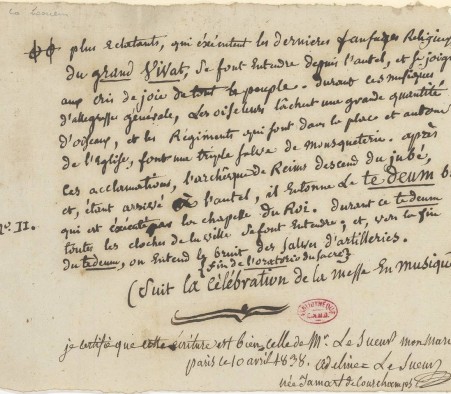 plus eclatants, qui exécutent les dernieres fanfares Religieu
du grand Vivat, se font Entendre depuis l'autel, et se joign
aux cris de joie de tout le peuple. durant ces musiques
d'allegresse générale, Les oiseleurs lâchent une grande quantité
d'oiseaux, et les Régiments qui sont dans la place et autour
de l'Eglise, font une triple salve de mousqueterie. après
ces acclamations, l'archevêque de Reims descend du jubé,
et, étant arrivé à l'autel, il Entonne Le te deum
n.º II.
qui est exécuté par la chapelle du Roi. Durant ce te deum
toutes les cloches de la ville se font Entendre; et, vers la fin
du tedeum, on Entend le bruit des salves d'artilleries.
(fin de l'oratorio du sacre)
(Suit la célébration de la messe En musique
je certifie que cette écriture est bien celle de Mr. Le Sueur mon mari
paris le 10 avril 1838. adeline Le Sueur
née Jamart de Courchamps